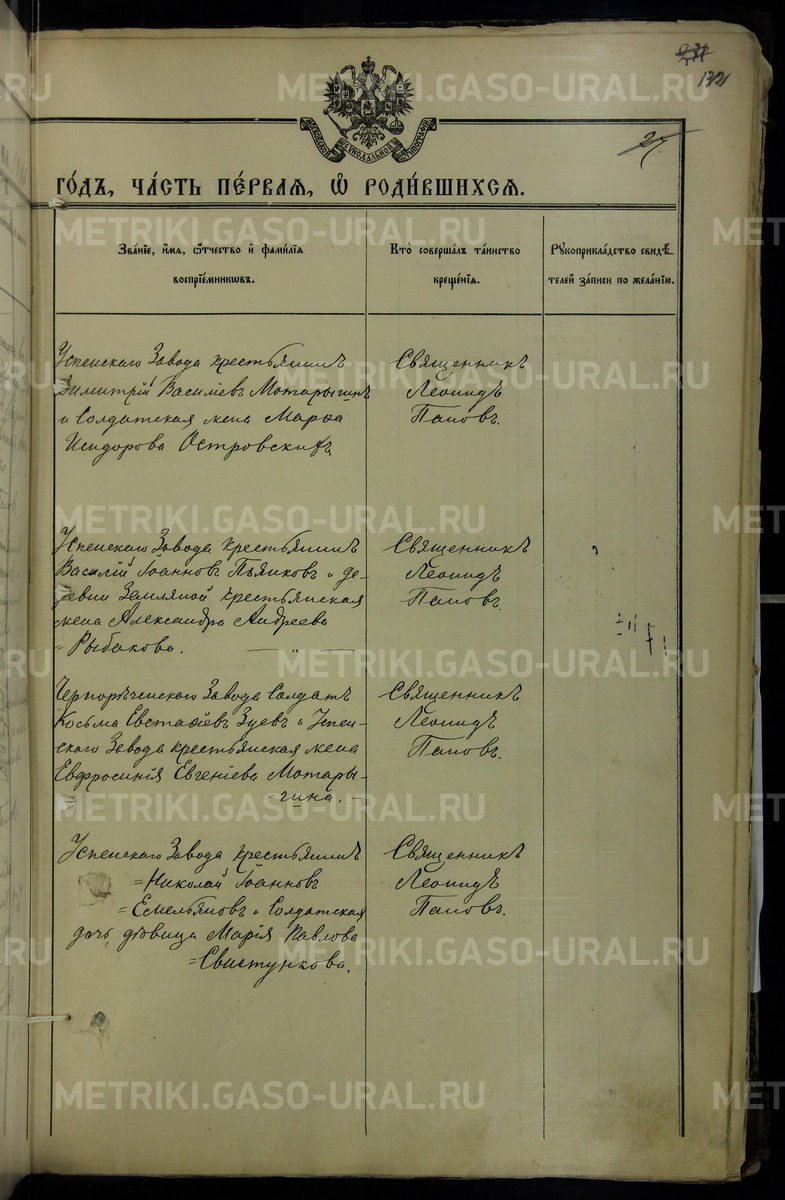 132
27.
МОСКОВСКОЙ СѴНОДАЛЬНОЙ ТИПОГРАФІИ
ГО́ДЪ, ЧА́СТЬ ПЕ́РВАѦ, Ѡ҆ РОДИ́ВШИХСѦ.
Зва́нїе, и҆́мѧ, ѻ҆́тчество и҆ фами́лїѧ
воспрїе́мникѡвъ.
Кто̀ соверша́лъ та́инство
креще́нїѧ.
Рꙋкоприкла́дство свидѣ́-
телей за́писи по жела́нїю.
Успенскаго Завода крестьянинъ
Димитрій Василіевъ Мотарыгинъ
и Солдатская жена Марѳа
Исидорова Островскихъ
Священникъ
Леонидъ
Поповъ.
Успенскаго Завода крестьянинъ
Василій Іоанновъ Пьянковъ и де-
ревни Земляной крестьянская
жена Александра Андреева
= Рыбакова.
Священникъ
Леонидъ
Поповъ.
Чернорѣченскаго Завода Солдатъ
Косьма Евстафіевъ Зуевъ и Успен-
скаго Завода крестьянская жена
Евфросинія Евгеніева Мотары-
=гина. –
Священникъ
Леонидъ
Поповъ.
Успенскаго Завода крестьянинъ
= Николай Іоанновъ
= Емельяновъ и Солдатская
дочь, дѣвица Марія Павлова
= Свистункова.
Священникъ
Леонидъ
Поповъ.
METRIKI.GASO-URAL.RU